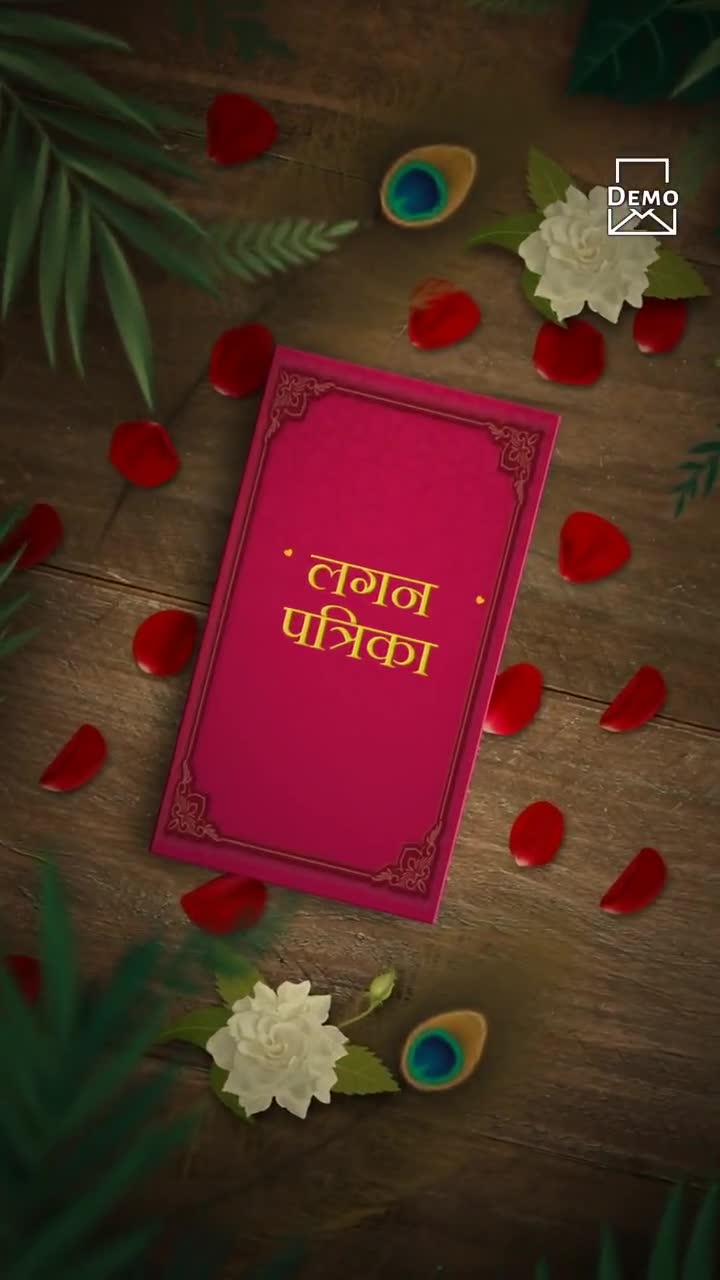 DEMO
लगन
पत्रिका